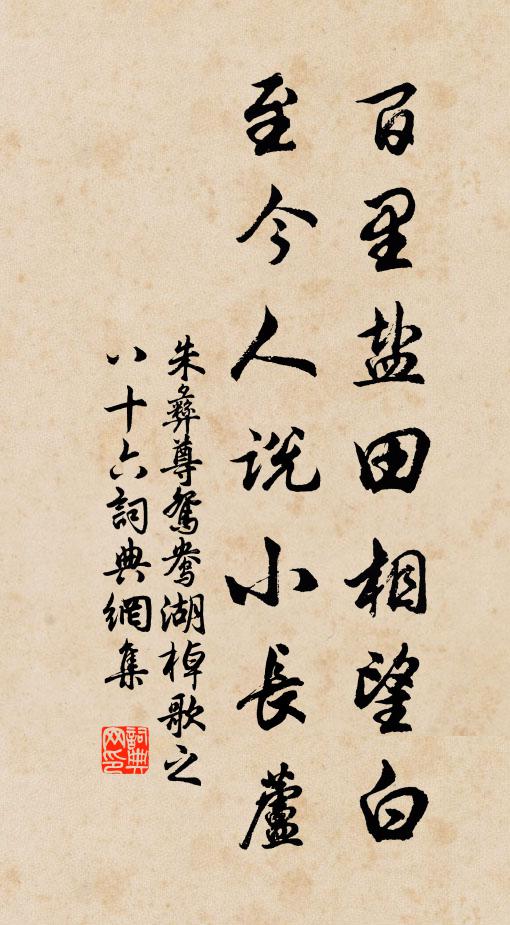 百里盐田相望白
至今人说小長蘆
朱彝尊鴛鴦湖棹歌之
八十六詞典網集
詞典
网印